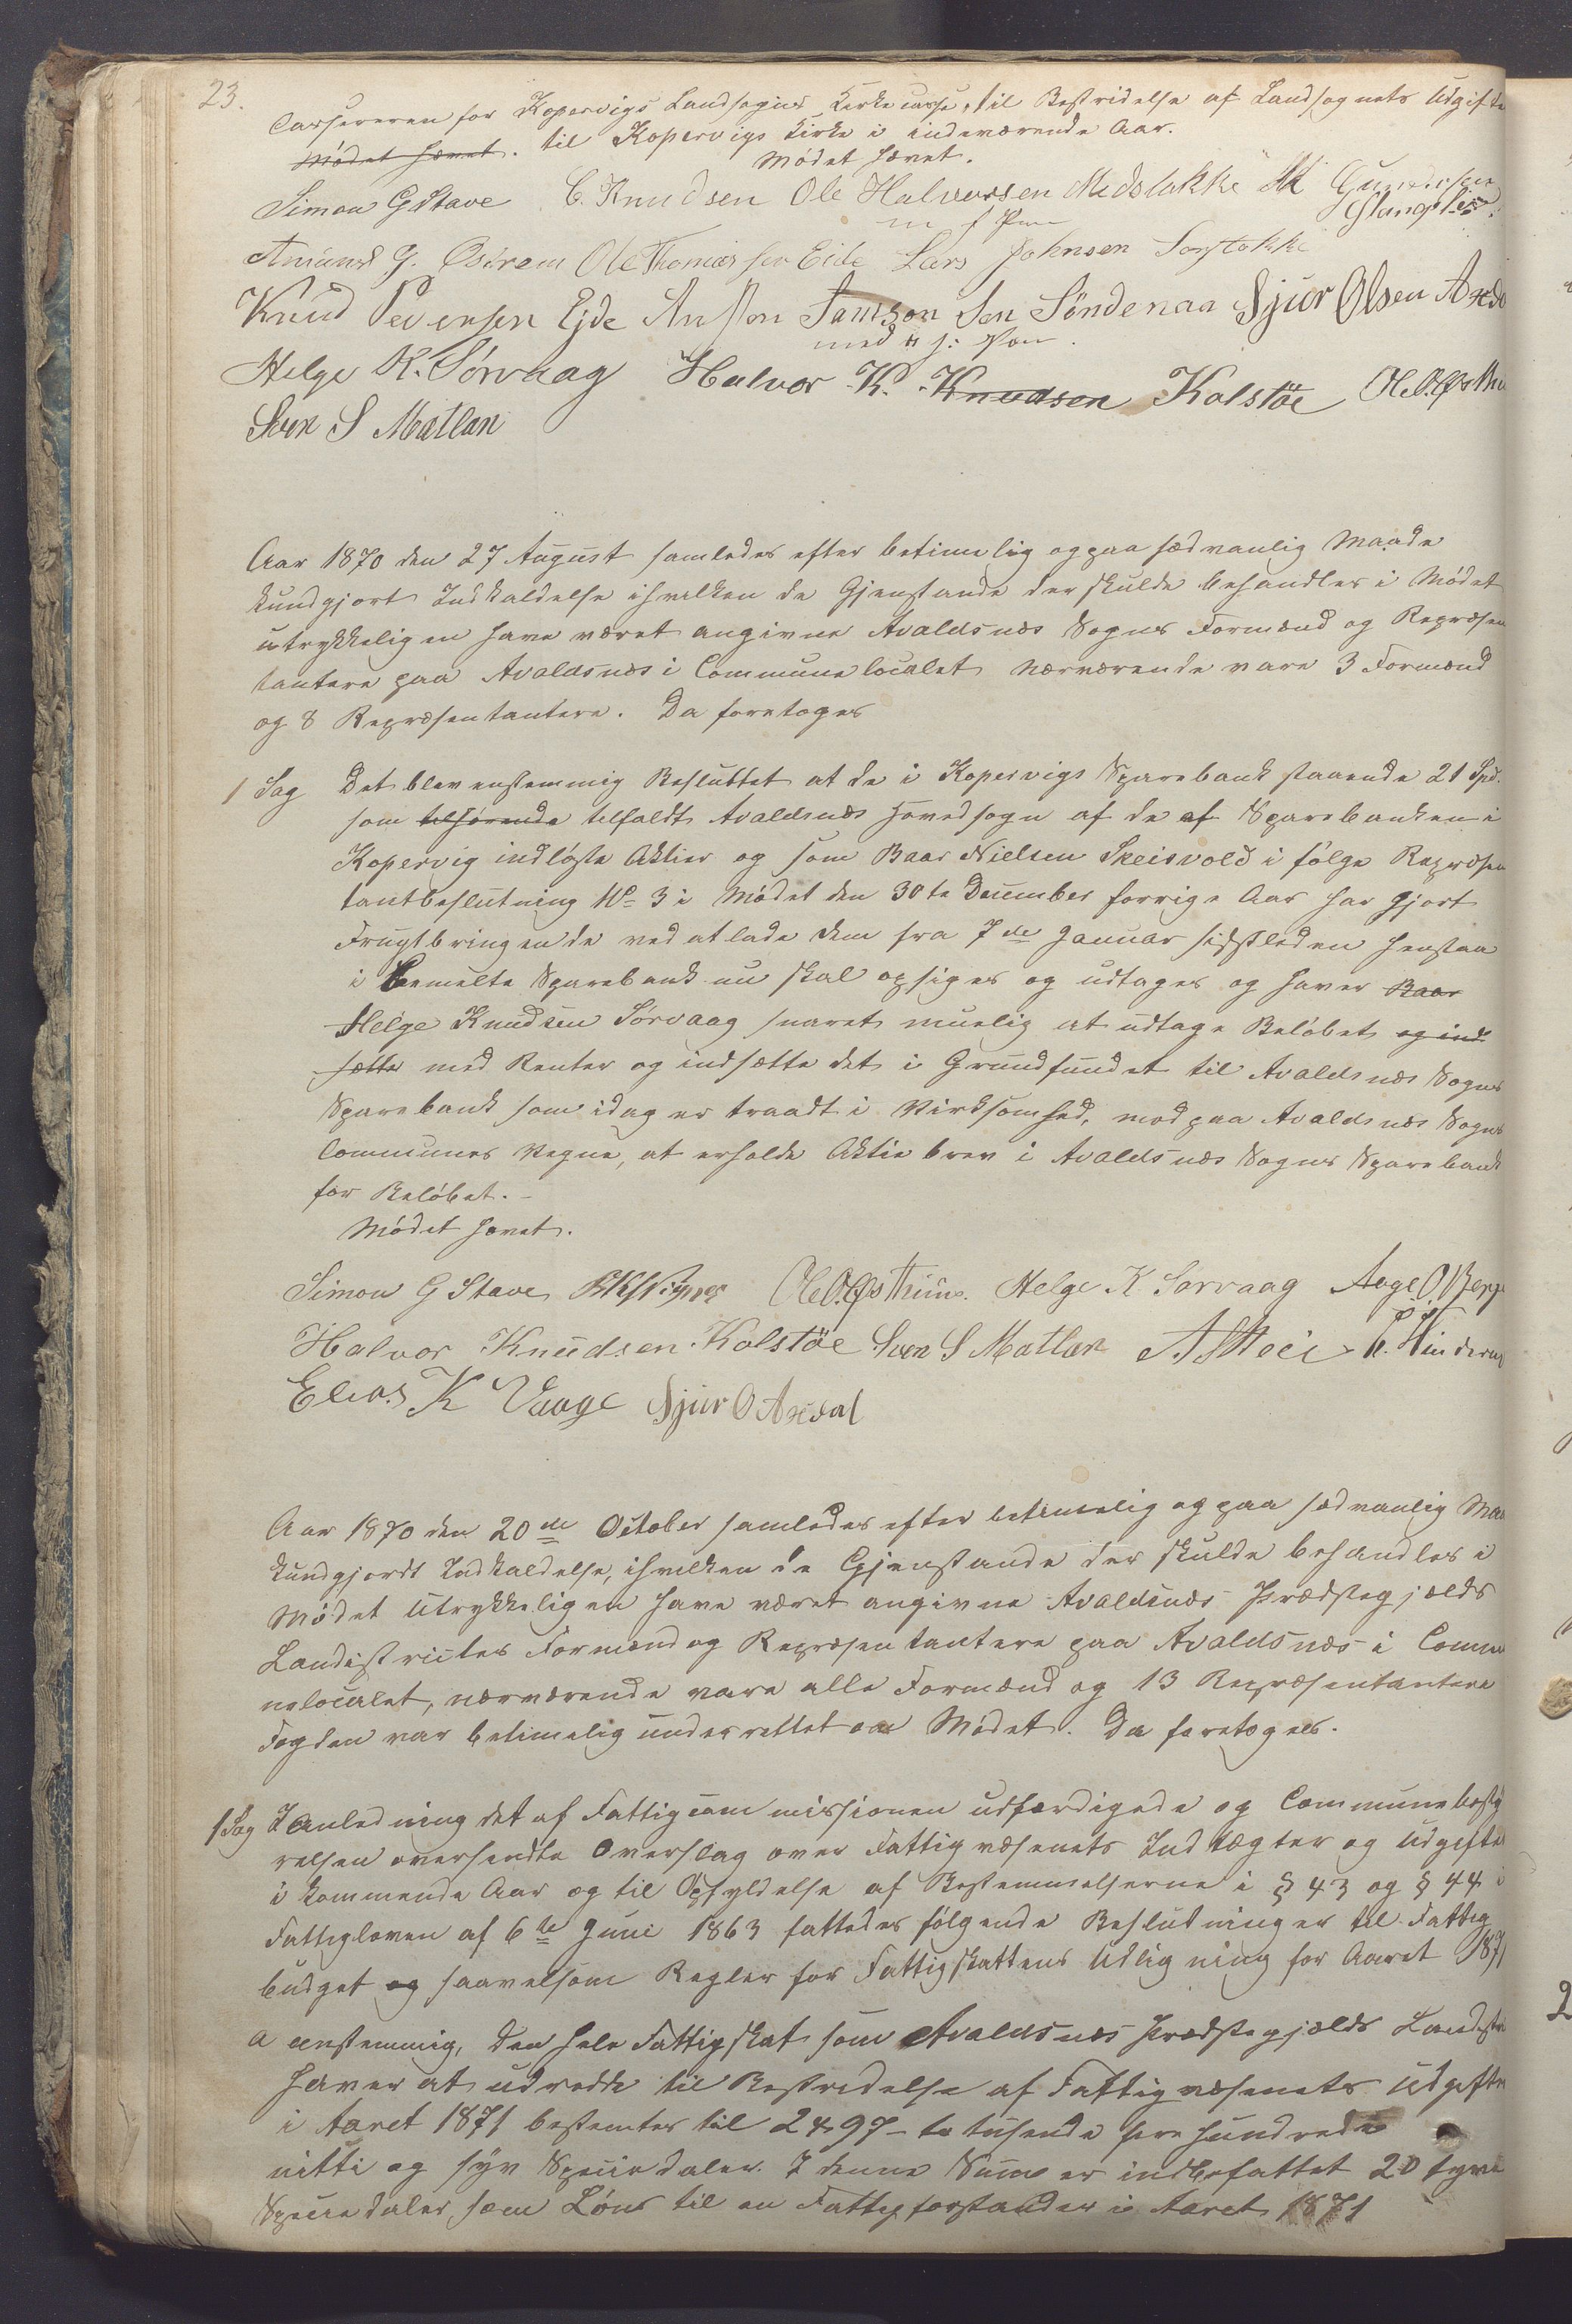 23.
Cassereren for Kopervigs Landsogns Kirkecasse, til Bestridelse af Landsognets Udgifte
Mødet hævet. til Kopervigs Kirke i indeværende Aar.
Mødet hævet.
Simon G Stave C. Knudsen Ole Halvorsen Medstokke M Gundersen
m f Pen Stangeland
Amund G. Østrem Ole Thomassen Eide Lars Johnsen Sørstokke
Knud Peersen Ejde Anston Samson Sen Søndenaa Sjur Olsen Axda
med p. f: Pen.
Helge K. Sørvaag Halvor K. Knudsen Kolstöe Ole O. Østhu
Sven S Matlan
Aar 1870 den 27 August samledes efter betimelig og paa sædvanlig Maade
kundgjort Indkaldelse ihvilken de Gjenstande der skulde behandles i Mødet
utrykkeligen have været angivne Avaldsnæs Sogns Formænd og Repræsen
tantere paa Avaldsnæs i Communelocalet nærværende vare 3 Formænd
og 8 Repræsentantere. Da foretoges
1 Sag Det blev enstemmig Besluttet at de i Kopervigs Sparebank staaende 21 Spd.
som tilhørende tilfaldt Avaldsnæs Hovedsogn af de af Sparebanken i
Kopervig indløste Aktier og som Baar Nielsen Skeisvold i følge Repræsen
tantbeslutning No 3 i Mødet den 30te December forrige Aar har gjort
Frugtbringende ved at lade dem fra 7de Januar sidstleden henstaa
i bemelte Sparebank nu skal opsiges og udtages og haver Baar
Helge Knudsen Sørvaag snarest muelig at udtage Beløbet og ind
sætte med Renter og indsætte det i Grundfundet til Avaldsnæs Sogns
Sparebank som idag er traadt i Virksomhed, mod paa Avaldsnæs Sogns
Communes Vegne, at erholde Aktiebrev i Avaldsnæs Sogns Sparebank
for Beløbet.-
Mødet hævet.
Simon G Stave Ole O. Østhuus. Helge K Sørvaag Aage O Berge
Halvor Knudsen Kolstöe Sven S Matlan
Elias K Vaage Sjur O Axdal
Aar 1870 den 20de October samledes efter betimelig og paa sædvanlig Maa
kundgjordt Indkaldelse, ihvilken de Gjenstande der skulde behandles i
Mødet Utrykkeligen have været angivne Avaldsnæs Prædstegjælds
Landistrictes Formænd og Repræsentantere paa Avaldsnæs i Commu
nelocalet, nærværende vare alle Formænd og 13 Repræsentantere
Fogden var betimelig underrettet om Mødet. Da foretoges.
1 Sag I Anledning det af Fattigcommissionen udfærdigede og Communebesty
relsen oversendte Overslag over Fattigvæsenets Indtægter og Udgifte
i kommende Aar og til Opfyldelse af Bestemmelserne i § 43 og § 44 i
Fattigloven af 6te Juni 1863 fattedes følgende Beslutninger til Fattig
budget og saavelsom Regler for Fattigskattens Udligning for Aaret 1871
a eenstemmig, den hele Fattigskat som Avaldsnæs Prædstegjælds Landistr
haver at udredde til Bestridelse af Fattigvæsenets Udgifte
i Aaret 1871 bestemtes til 2497 - to tusende fire hundrede
nitti og syv Speciedaler. I denne Sum er indbefattet 20 tyve
Speciedaler som Løn til en Fattigforstander i Aaret 1871
2